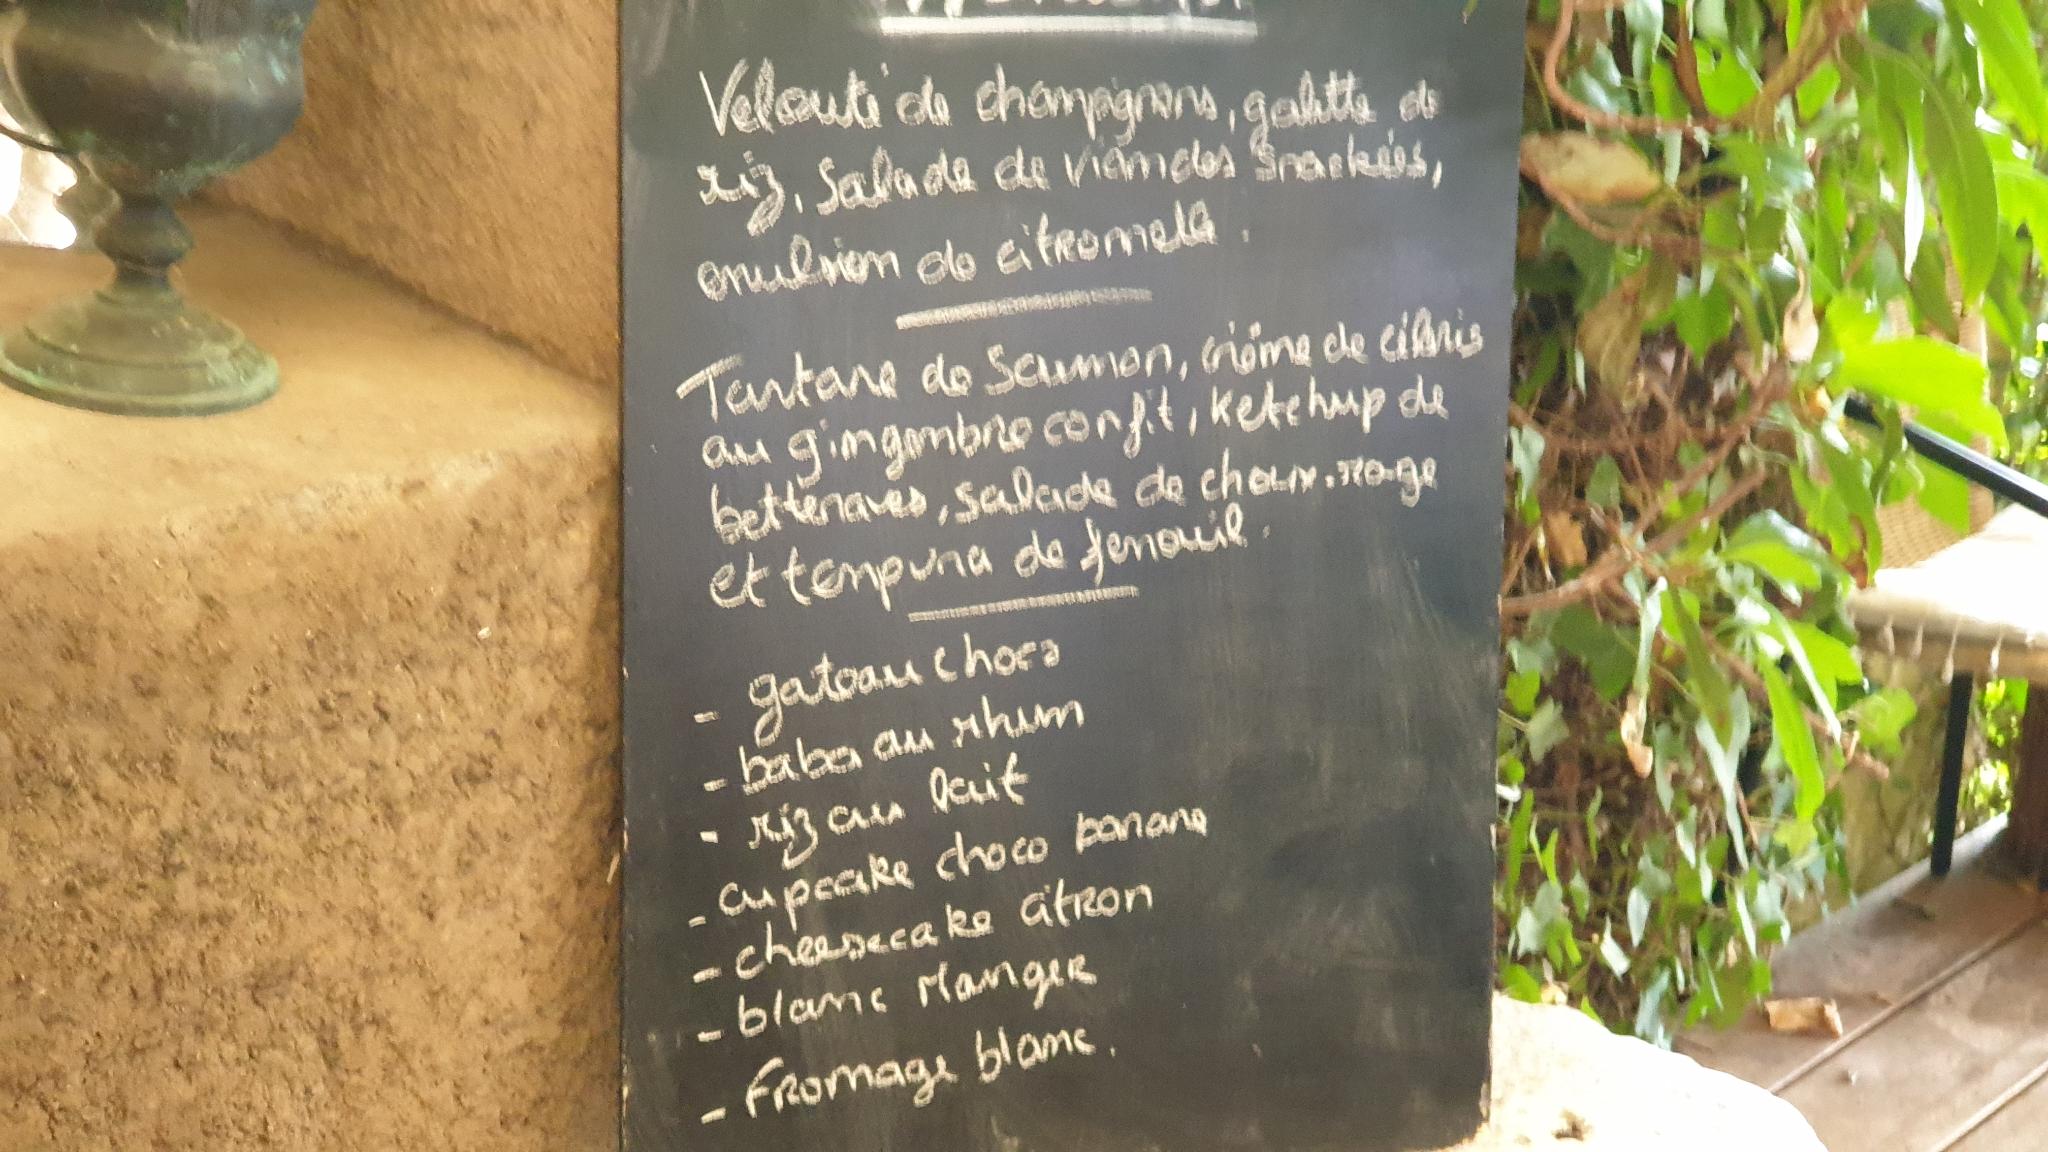 Velouté de champignons, galette de
riz, salade de viandes snackées,
emulsion de citronnelle.
Tartare de Saumon, crème de céleris
au gingembre confit, ketchup de
betteraves, salade de choux-rouge
et tempura de fenouil.
- gateau choco
- baba au rhum
- riz au lait
- cupcake choco banane
- cheesecake citron
- blanc Manger
- Fromage blanc.